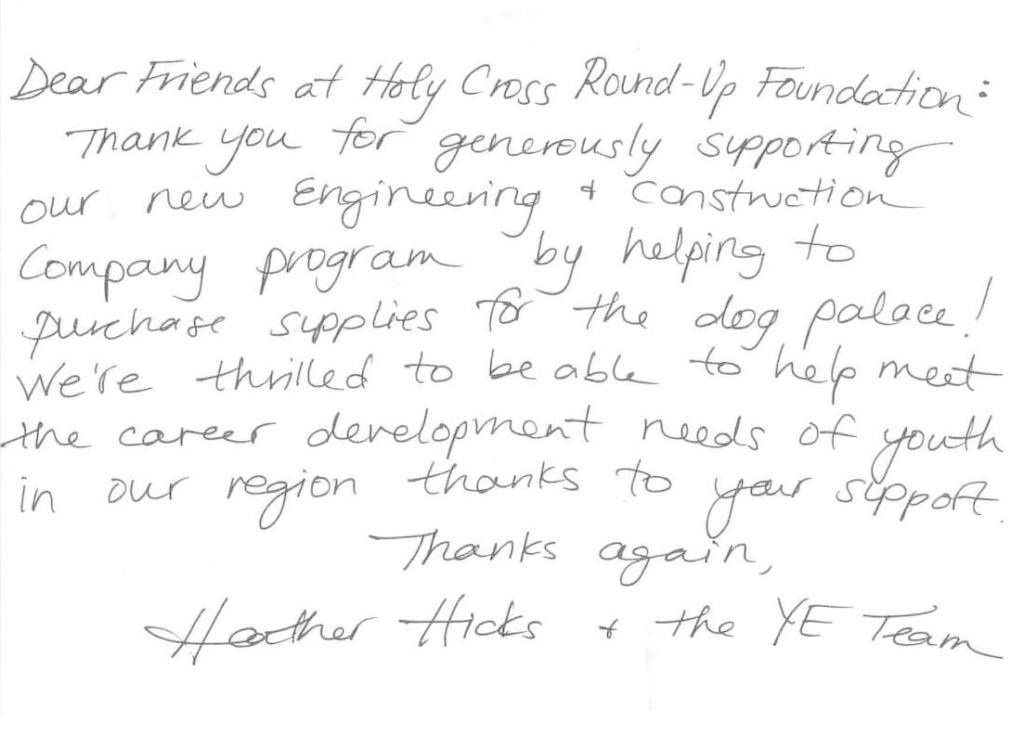 Dear Friends at Holy Cross Round-Up Foundation:
Thank you for generously supporting
our new Engineering & Construction
Company program by helping to
purchase supplies for the dog palace!
We're thrilled to be able to help meet
the career development needs of youth
in our region thanks to your support.
Thanks again,
Heather Hicks + the YE Team